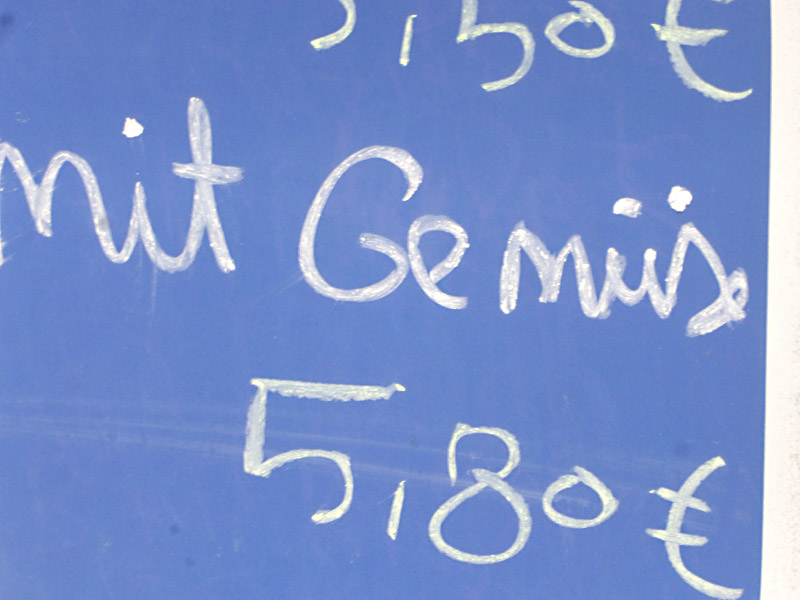 5,50 €
mit Gemüse
5,80 €